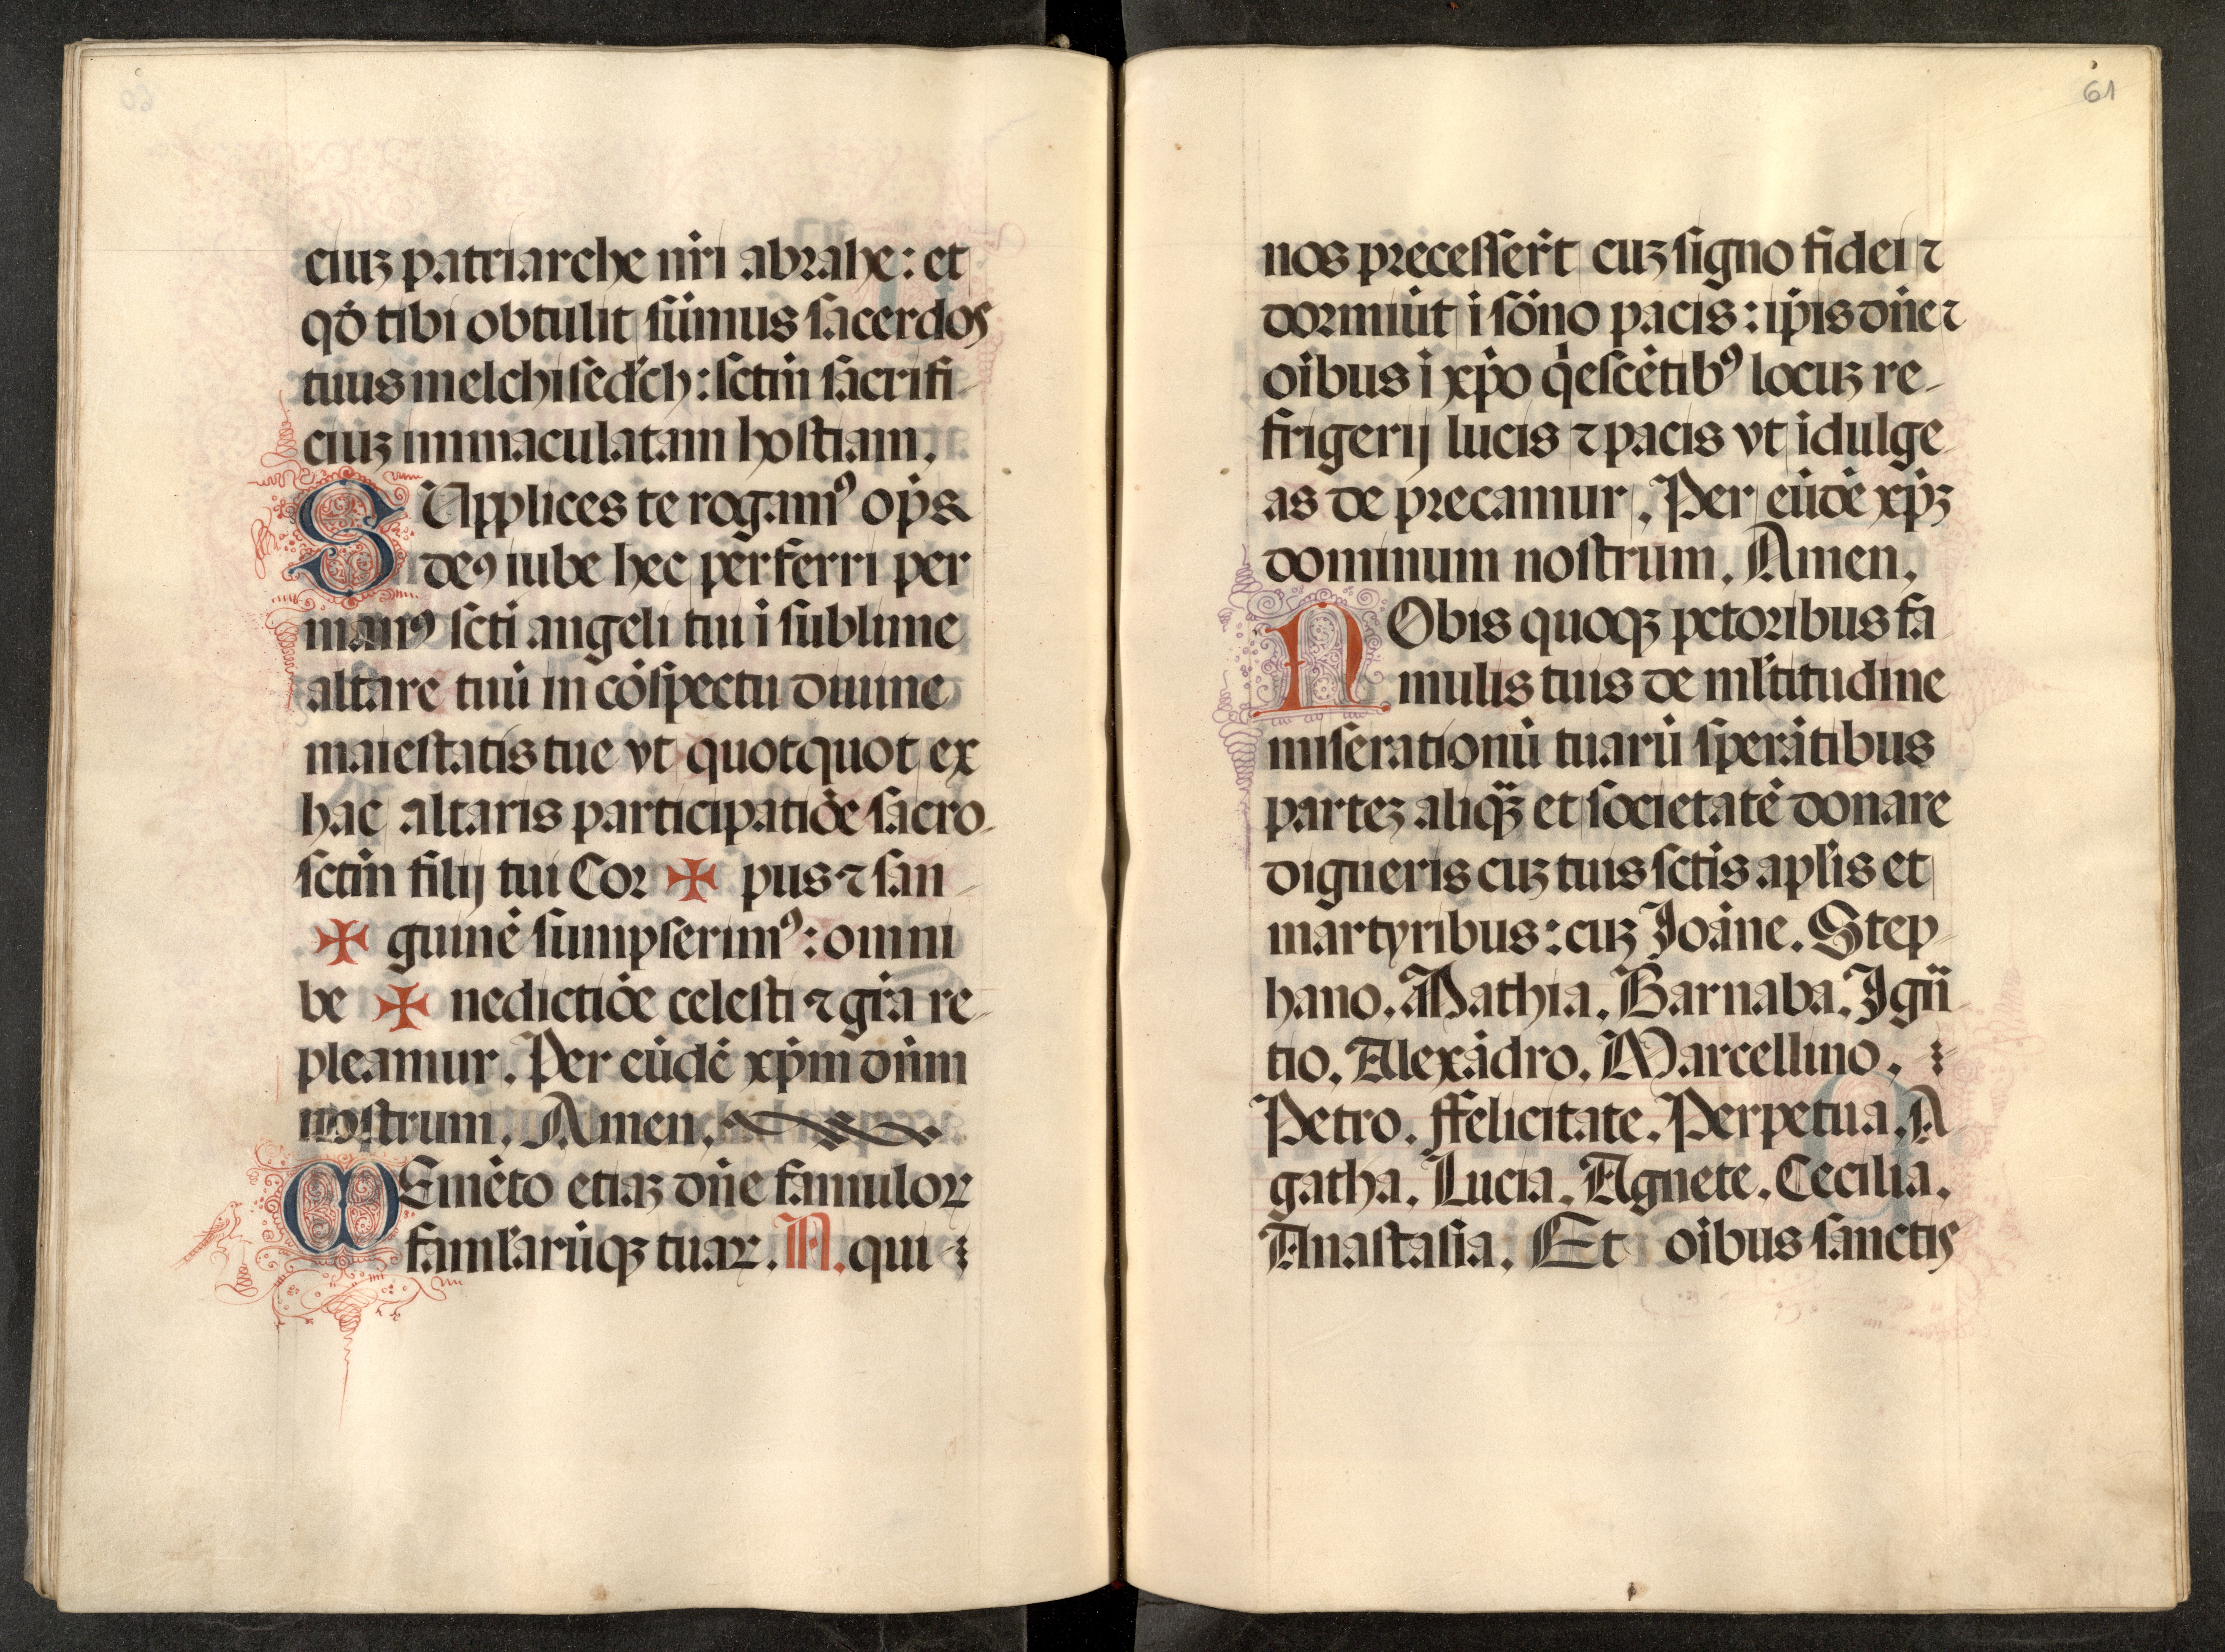 ciuz patriarche nr̄i abrahe: et
qd̄ tibi obtulit sūmus sacerdos
tuus melchisedʼch: sctm̄ sacrifi-
ciuz immaculatam hostiam.
SUpplices te rogamꝰ op̄s
deꝰ iube hec perferri per
manꝰ scti angeli tui ī sublime
altare tuū in cōspectu diuine
maiestatis tue vt quotquot ex
hac altaris participatiōe sacro-
sctm̄ filij tui Cor ✠ pus ⁊ san-
✠ guinē sumpserimꝰ: omni
be ✠ nedictiōe celesti ⁊ gr̄a re-
pleamur. Per eūdē xp̄m dn̄m
nostrum. Amen.
MEmēto etiaz dn̄e famuloꝝ
famlʼarūqꝫ tuaꝝ. N. qui
61
nos precesser̄t cuz signo fidei ⁊
dormiūt ī sōno pacis: ip̄is dn̄e ⁊
oībus ī xp̄o qͥescētibꝰ locuz re-
frigerij lucis ⁊ pacis vt īdulge
as de precamur. Per eūdē xp̄ꝫ
dominum nostrum. Amen.
NObis quoqꝫ pctoribus fa
mulis tuis de mlʼtitudine
miserationū tuarū sperātibus
partez aliqᷓꝫ et societatē donare
digneris cuz tuis sctis aplʼis et
martyribus: cuz Joāne. Step-
hano. Mathia. Barnaba. Jgn̄
tio. Alexādro. Marcellino.
Petro. ffelicitate. Perpetua. A
gatha. Lucia. Agnete. Cecilia.
Anastasia. Et oībus sanctis